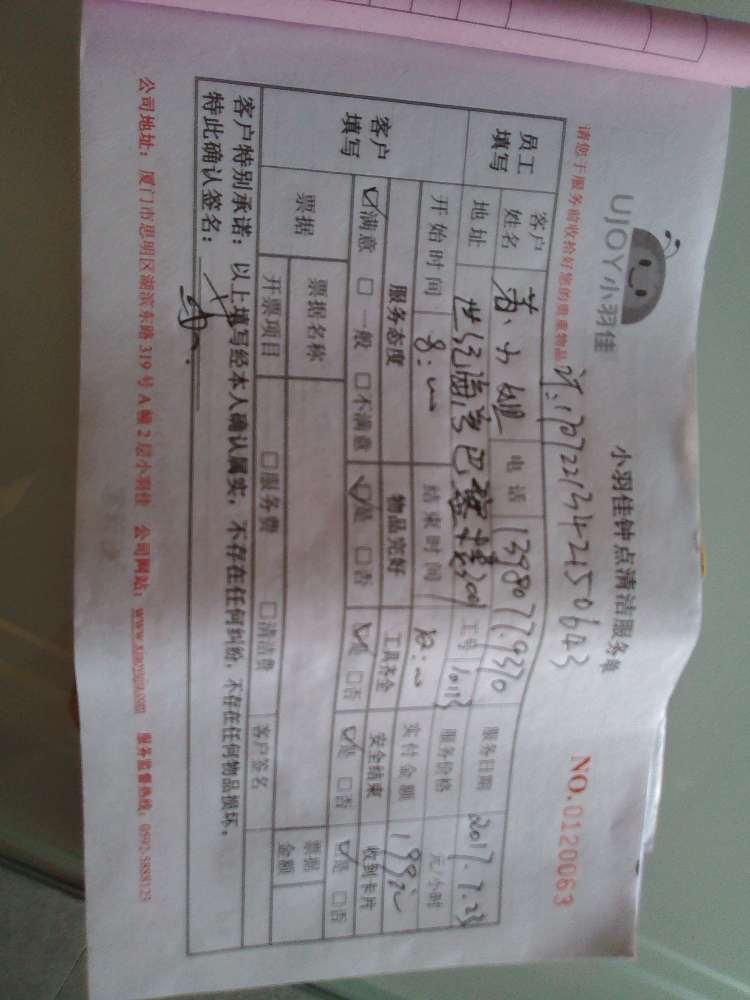 UJOY小羽佳
小羽佳钟点清洁服务单
NO.0120063
请您于服务前收拾好您的贵重物品
员工填写 客户姓名 苏小姐 电话 服务日期 2017.7.23
地址 世纪 工号 服务价格 元/小时
客户填写 开始时间 8:00 结束时间 实付金额 199元
服务态度 物品完好 工具齐全 安全结束 收到卡片
☑满意 □一般 □不满意 ☑是 □否 ☑是 □否 ☑是 □否 ☑是 □否
票据 票据名称 票据金额
开票项目 □服务费 □清洁费 客户签名
客户特别承诺:以上填写经本人确认属实,不存在任何纠纷,不存在任何物品损坏。
特此确认签名:
公司地址:厦门市思明区湖滨东路319号A幢2层小羽佳 公司网站:www.xiaoyujia.com 服务监督热线:0592-5888123